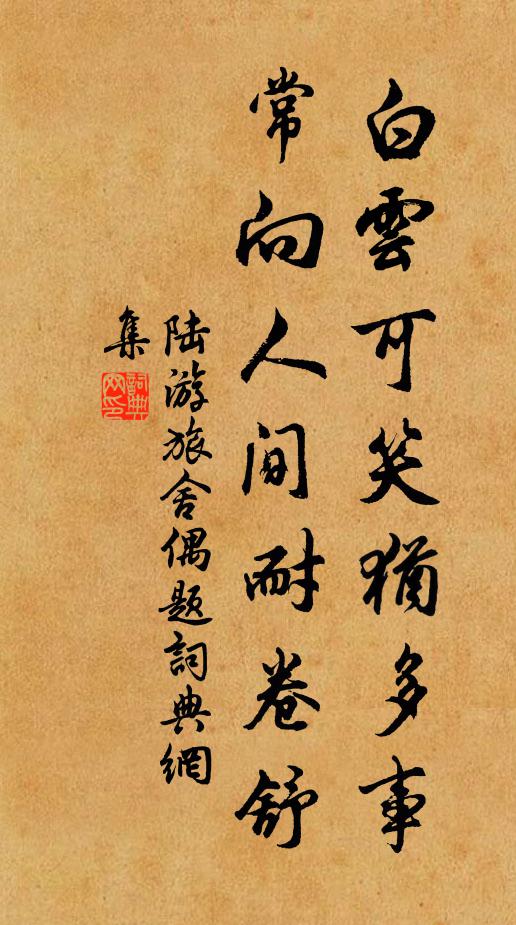 白雲可笑猶多事
常向人间耐卷舒
陆游旅舍偶题詞典網
集
詞典网印